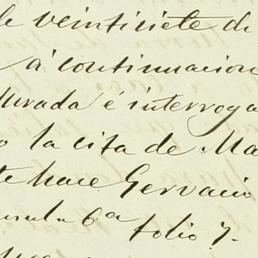 de veintisiete de
á continuacion
Jurada é interroga
o la cita de Ma
te hace Gervacio
6ª folio 7.